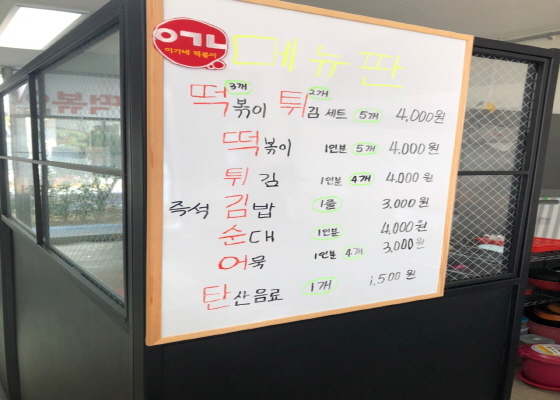 여기네 떡볶이
메뉴판
떡볶이 3개 튀김 2개 세트 5개 4,000원
떡볶이 1인분 5개 4,000원
튀김 1인분 4개 4,000원
즉석 김밥 1줄 3,000원
순대 1인분 4,000원
어묵 1인분 4개 3,000원
탄산음료 1개 1,500원